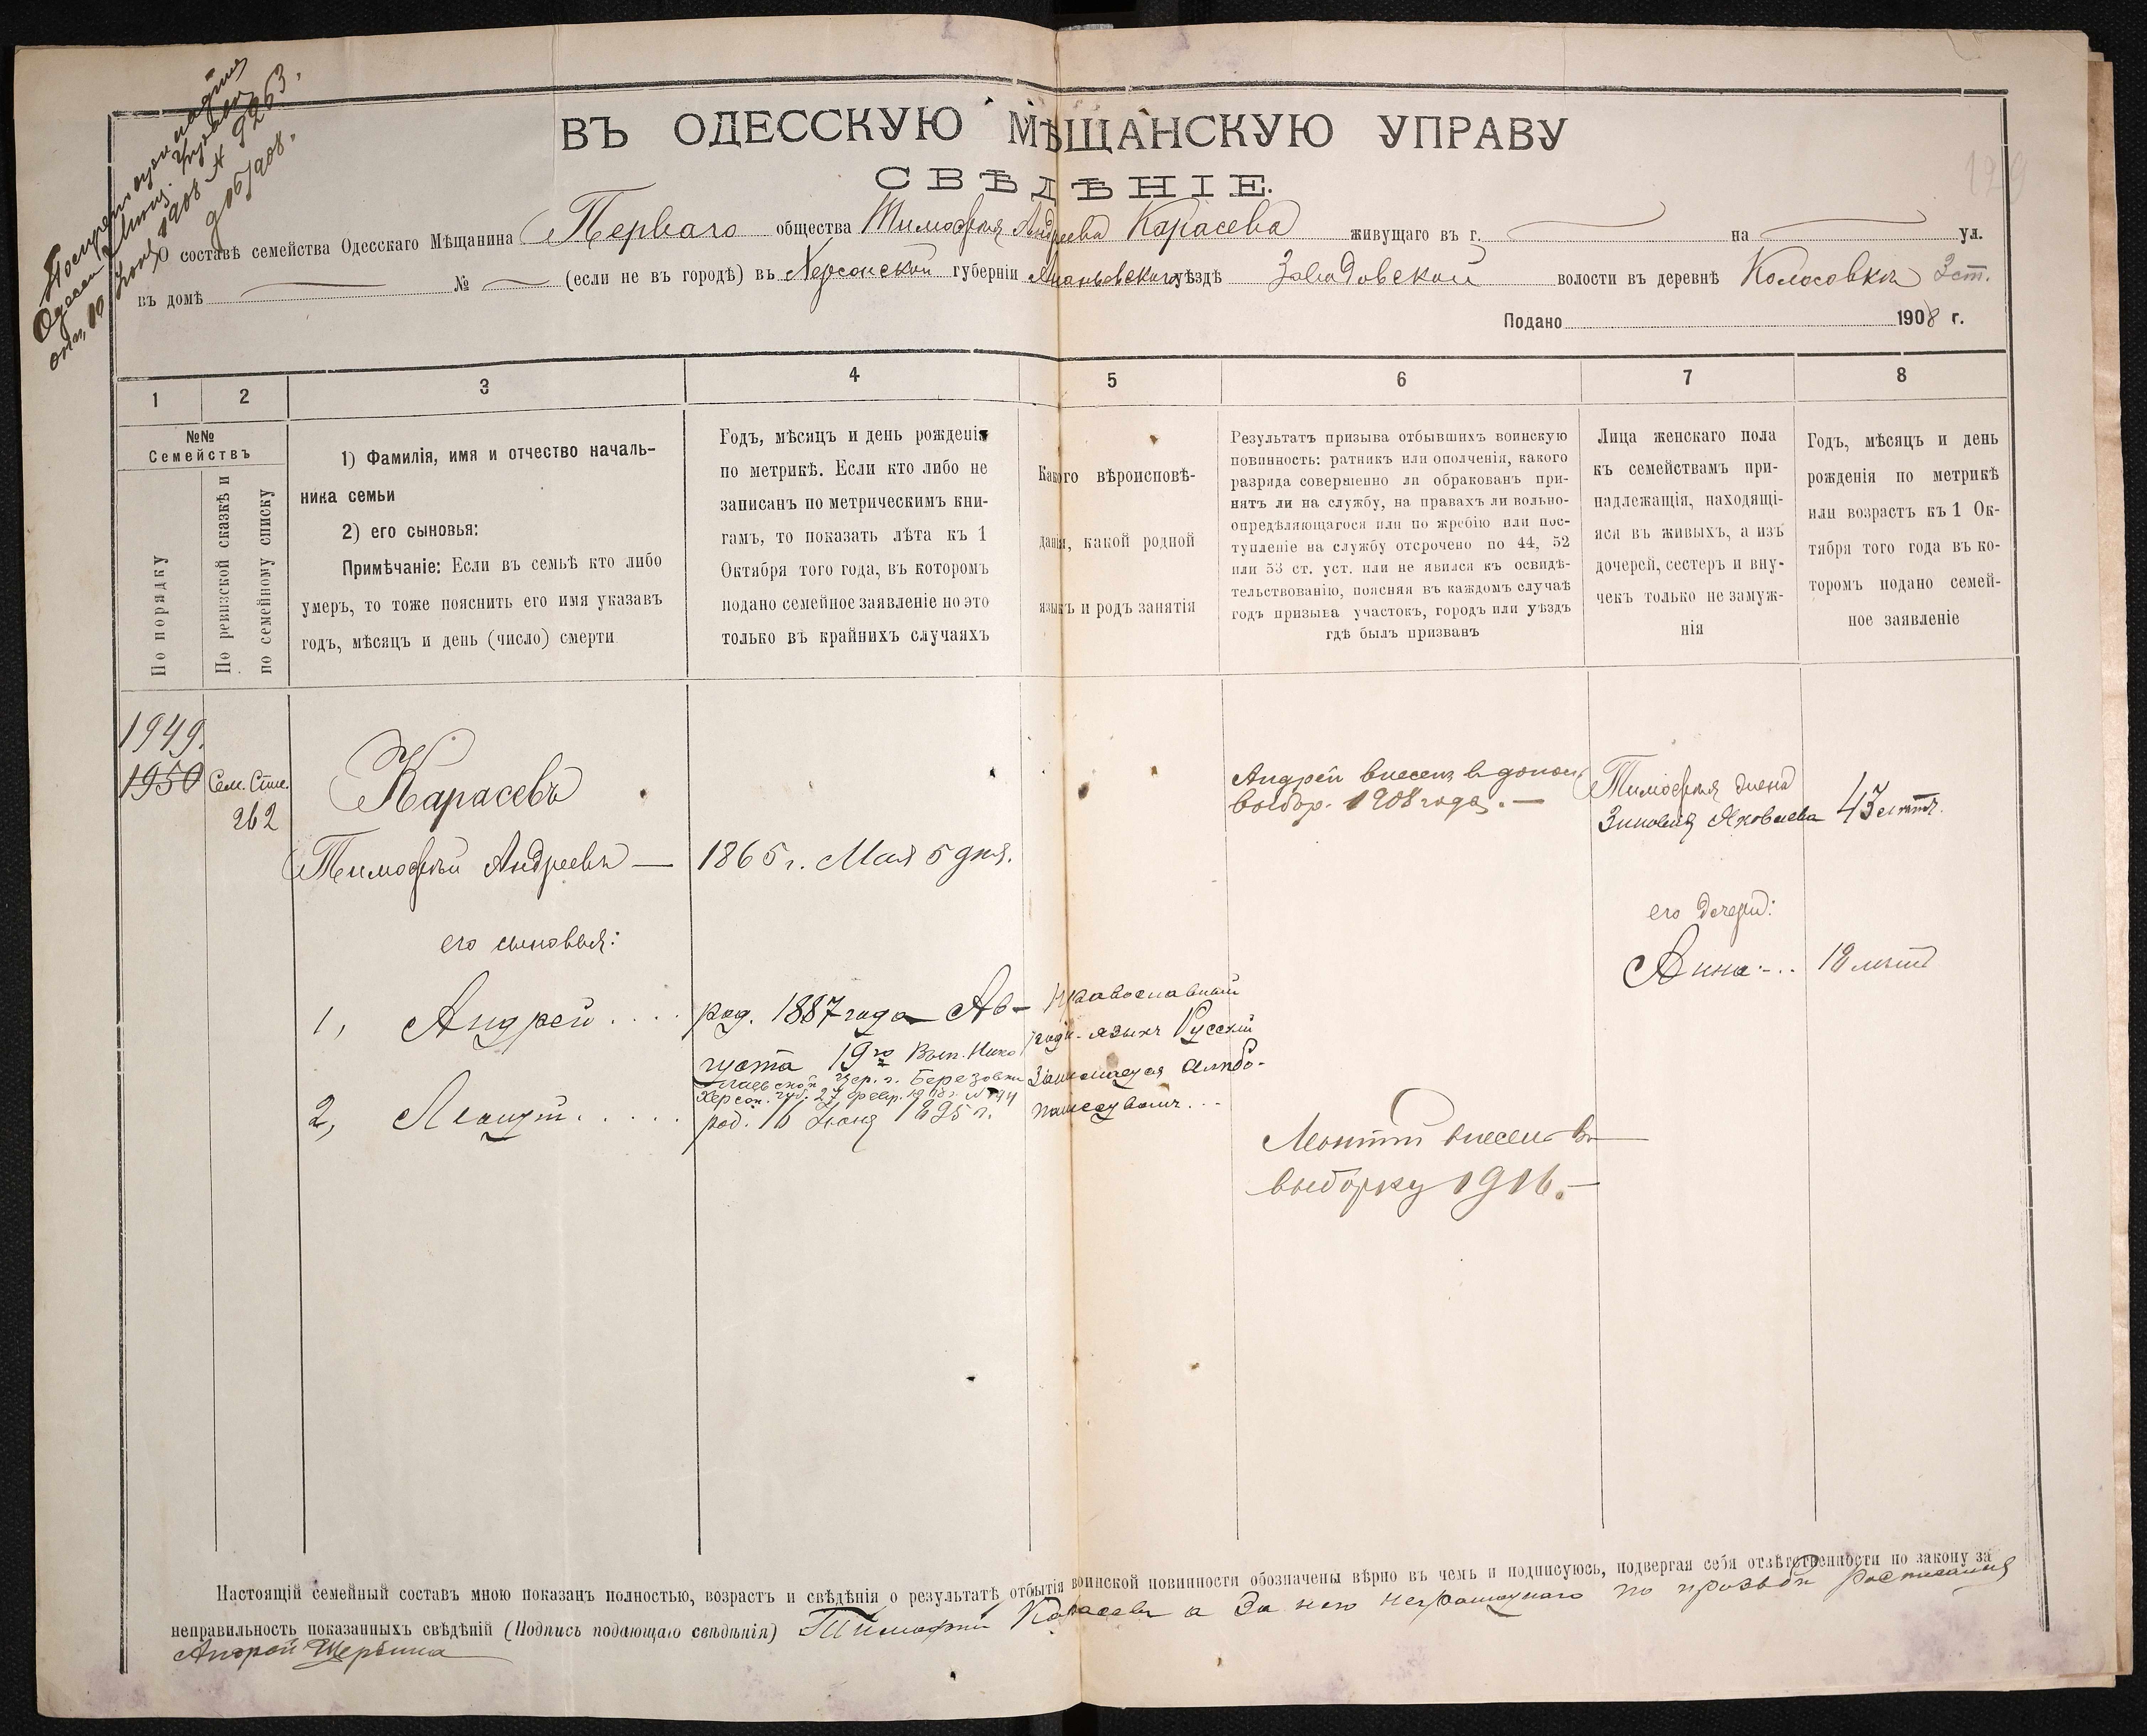 ВЪ ОДЕССКУЮ МѢЩАНСКУЮ УПРАВУ
СВѢДѢНІЕ.
О составѣ семейства Одесскаго Мѣщанина Перваго общества Тимофея Андреева Карасева живущаго въ г. на ул.
въ домѣ № (если не въ городѣ) въ Херсонской губерніи Ананьевскаго уѣздѣ Заводовской волости въ деревнѣ Колосовка 3 ст.
Подано 1908 г.
1 2 3 4 5 6 7 8
№№
Семействъ
По порядку
По ревизской сказкѣ и
по семейному списку
1) Фамилія, имя и отчество началь-
ника семьи
2) его сыновья:
Примѣчаніе: Если въ семьѣ кто либо
умеръ, то тоже пояснить его имя указавъ
годъ, мѣсяцъ и день (число) смерти
Годъ, мѣсяцъ и день рожденія
по метрикѣ. Если кто либо не
записанъ по метрическимъ кни-
гамъ, то показать лѣта къ 1
Октября того года, въ которомъ
подано семейное заявленіе но это
только въ крайнихъ случаяхъ
Какого вѣроисповѣ-
данія, какой родной
языкъ и родъ занятія
Результатъ призыва отбывшихъ воинскую
повинность: ратникъ или ополченія, какого
разряда совершенно ли обракованъ при-
нятъ ли на службу, на правахъ ли вольно-
опредѣляющагося или по жребію или пос-
тупленіе на службу отсрочено по 44, 52
или 53 ст. уст. или не явился къ освидѣ-
тельствованію, поясняя въ каждомъ случаѣ
годъ призыва участокъ, городъ или уѣздъ
гдѣ былъ призванъ
Лица женскаго пола
къ семействамъ при-
надлежащія, находящі-
яся въ живыхъ, а изъ
дочерей, сестеръ и вну-
чекъ только не замуж-
нія
Годъ, мѣсяцъ и день
рожденія по метрикѣ
или возрастъ къ 1 Ок-
тября того года въ ко-
торомъ подано семей-
ное заявленіе
1949.
1950
Сем. Спис.
262
Карасевъ
Тимофей Андреевъ —
1865 г. Мая 5 дня.
его сыновья:
1, Андрей
род. 1887 года Ав-
густа 19го Вып. Нико
лаевской Цер. г. Березовки
Херсон. губ. 27 февр. 1908 г. №
2, Леонтій
род. 16 Іюня 1895 г.
Православный
родн. языкъ Русскій
Занимается хлѣбо-
пашествомъ
Андрей внесенъ в допол.
выбор. 1908 года. —
Леонтій внесенъ въ
выборку 1916. —
Тимофея жена
Зиновія Яковлева
43 лѣтъ.
его дочери:
Анна
Настоящій семейный составъ мною показанъ полностью, возрастъ и свѣдѣнія о результатѣ отбытія воинской повинности обозначены вѣрно въ чемъ и подписуюсь, подвергая себя отвѣтственности по закону за
неправильность показанныхъ свѣдѣній (Подпись подающаго свѣдѣнія) Тимофей Карасевъ а За него неграмотнаго по прозьби росписался
Андрей Щербина